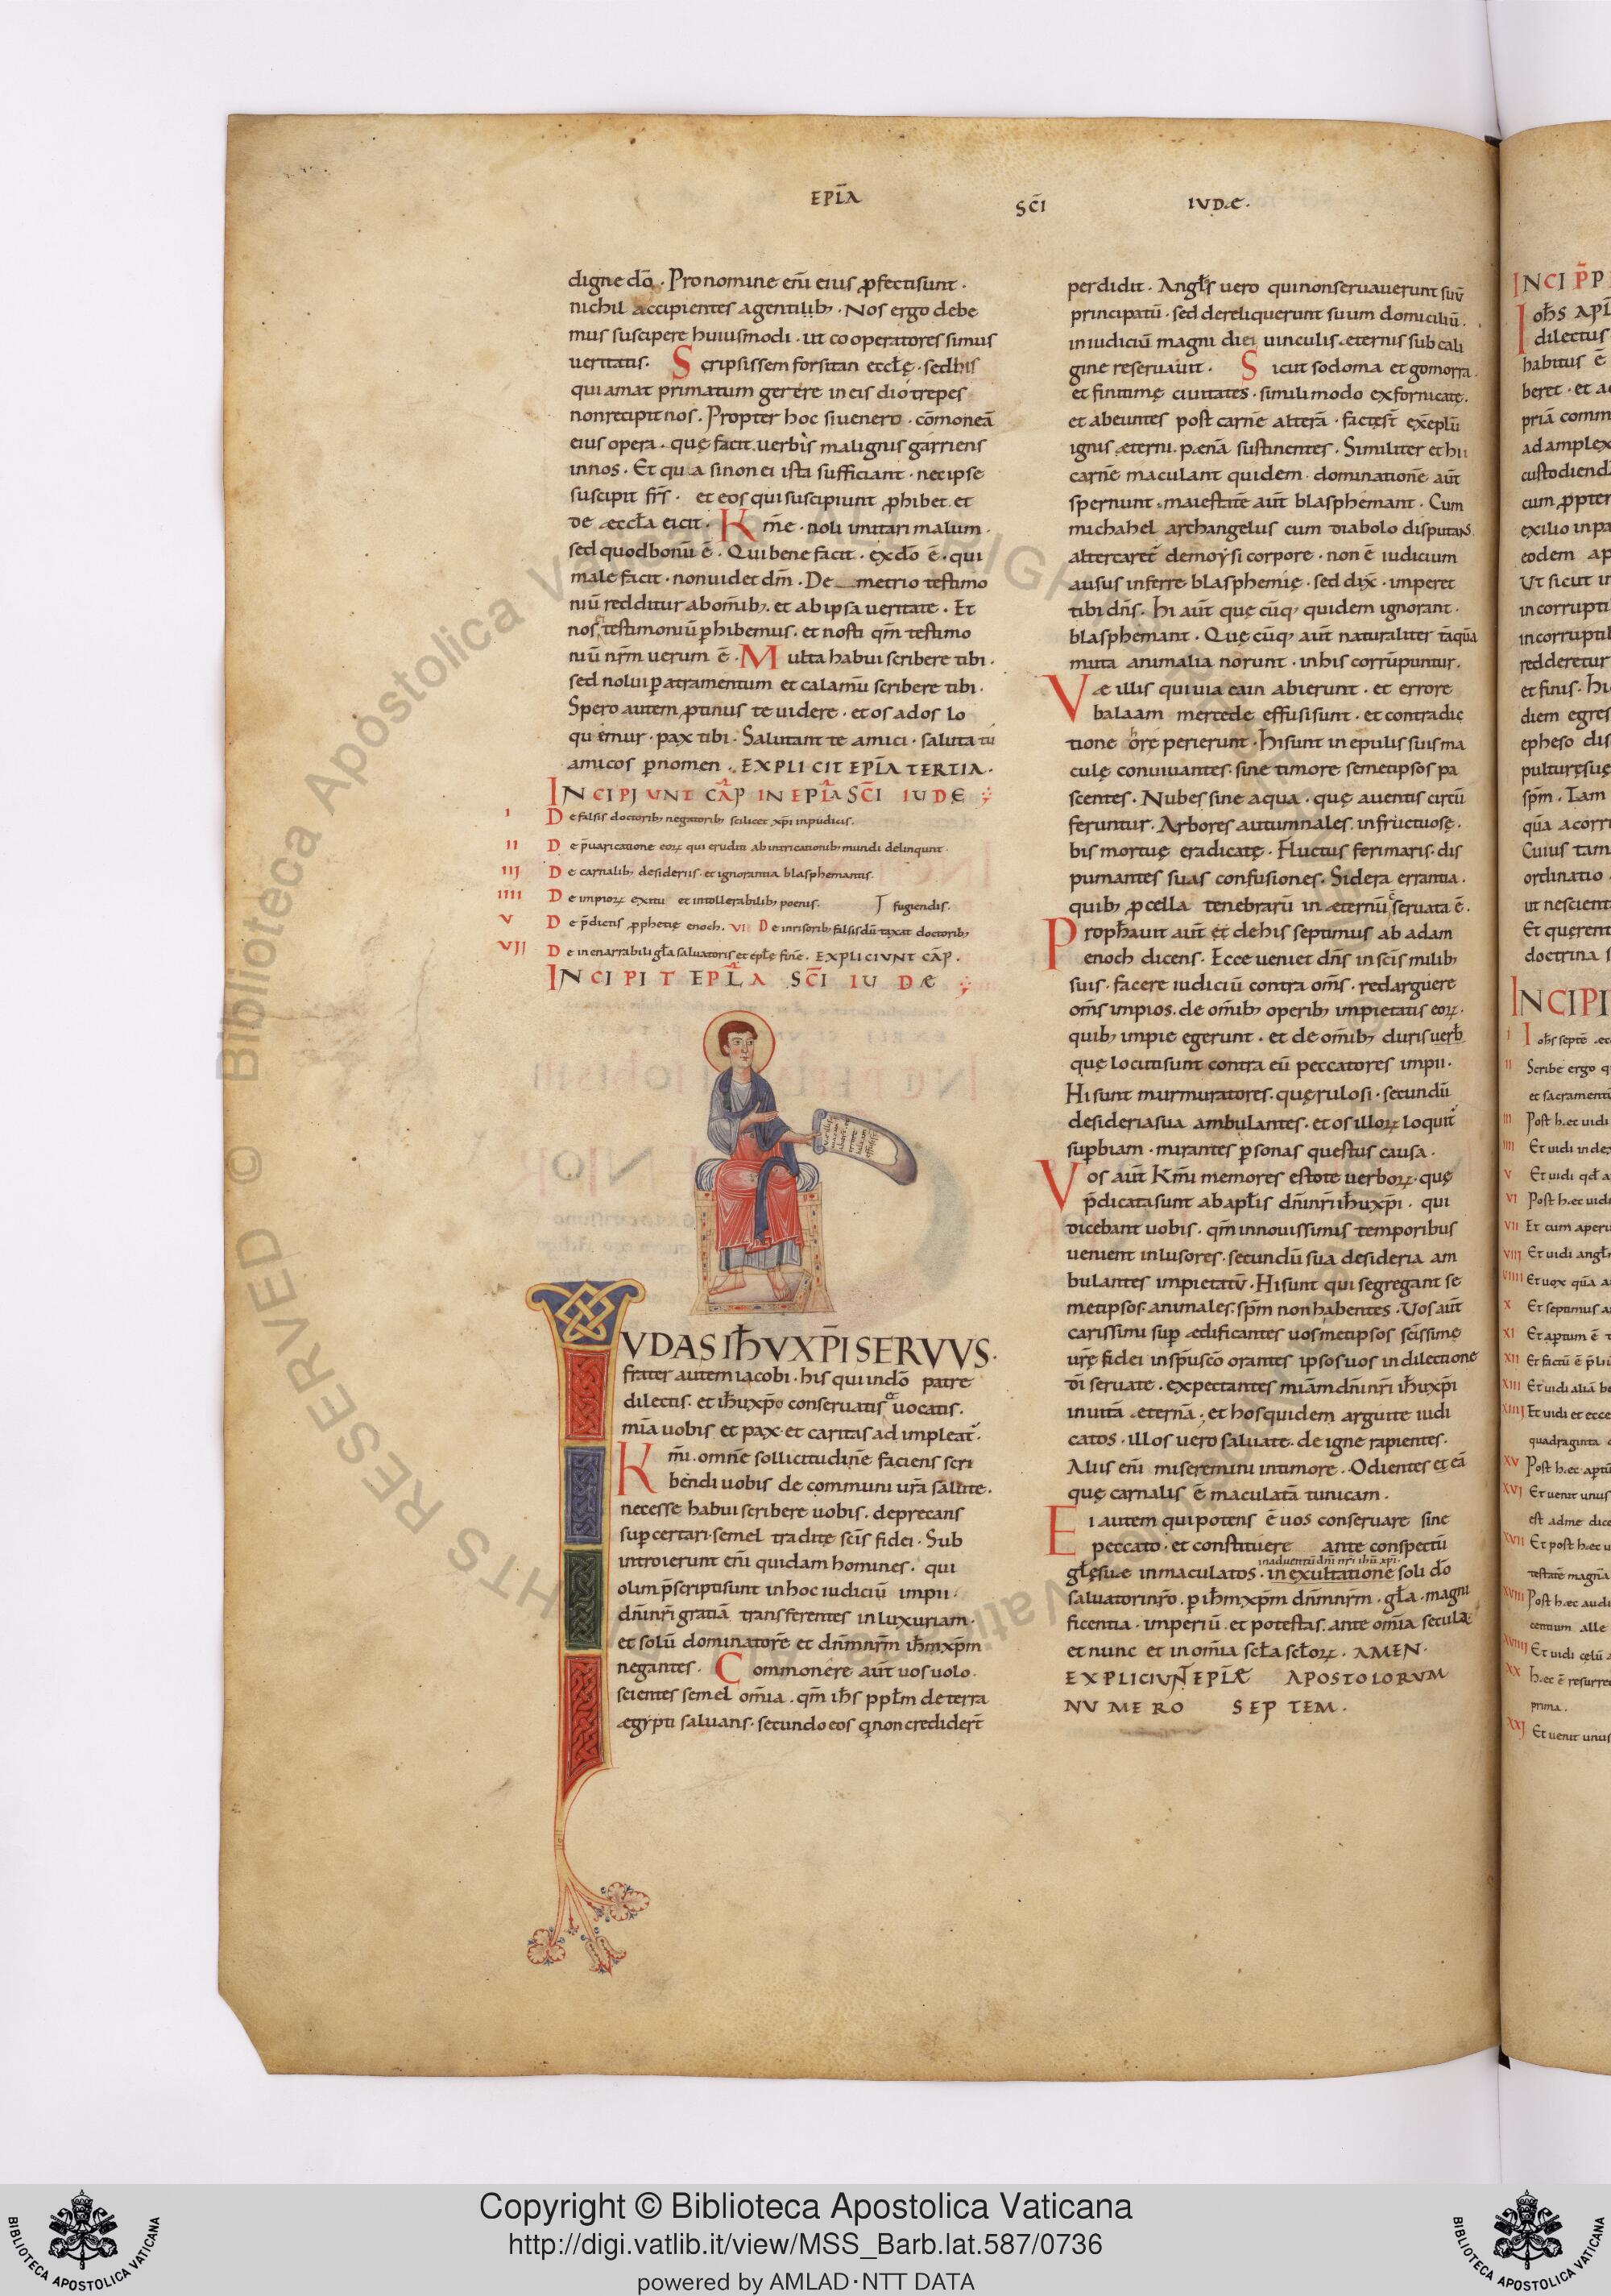 EPL̄A SC̄I IVDÆ.
digne dō. Pro nomine enī eius ꝓfecti sunt.
nichil accipientes a gentilibꝫ. Nos ergo debe
mus suscipere huiusmodi. ut cooperatores simus
ueritatis. Scripsissem forsitan eccłę. sed his
qui amat primatum gerere in eis diotrepes
non recipit nos. Propter hoc si uenero. cōmoneā
eius opera. quę facit. uerbis malignis garriens
in nos. Et quia si non ei ista sufficiant. nec ipse
suscipit fr̄s. et eos qui suscipiunt ꝓhibet. et
de æccła eicit. Km̄e. noli imitari malum.
sed quod bonū ē. Qui bene facit. ex dō ē. qui
male facit. non uidet dm̄. De metrio testimo
niū redditur ab om̄ibꝫ. et ab ipsa ueritate. Et
nos testimoniū ꝑhibemus. et nosti qm̄ testimo
niū nr̄m uerum ē. Multa habui scribere tibi.
sed nolui ꝑ atramentum et calamū scribere tibi.
Spero autem ꝓtinus te uidere. et os ad os lo
quemur. pax tibi. Salutant te amici. saluta tu
amicos ꝑ nomen. EXPLICIT EPL̄A TERTIA.
INCIPIUNT CAP̄ IN EPL̄A SC̄I IUDE
I De falsis doctoribꝫ negatoribꝫ scilicet xp̄i inpudicis.
II De p̄uaricatione eoꝝ qui eruditi ab intricationibꝫ mundi delinqunt.
III De carnalibꝫ desideriis. et ignorantia blasphemantis.
IIII De impioꝝ exitu et intollerabilibꝫ poenis. fugiendis.
V De p̄dictis ꝓphetię enoch. VI De inrisoribꝫ falsis dū taxat doctoribꝫ
VII De inenarrabili gła saluatoris et epłę fine. EXPLICIUNT CAP̄.
INCIPIT EPL̄A SC̄I IUDÆ
IVDAS IHV XPI SERVVS.
frater autem iacobi. his qui in dō patre
dilectis. et ihu xpo conseruatis et uocatis.
mīa uobis et pax et caritas adimpleat̄.
Km̄i. omnē sollicitudinē faciens scri
bendi uobis de communi ur̄a salute.
necesse habui scribere uobis. deprecans
suꝑcertari. semel traditę sc̄is fidei. Sub
introierunt enī quidam homines. qui
olim p̄scripti sunt in hoc iudiciū impii.
dn̄i nr̄i gratiā transferentes in luxuriam.
et solū dominatorē et dn̄m nr̄m ihm xpm
negantes. Commonere aut̄ uos uolo.
scientes semel om̄ia. qm̄ ihs ppłm de terra
ægypti saluans. secundo eos q̄ non credidert̄
perdidit. Angłs uero qui non seruauerunt suū
principatū. sed dereliquerunt suum domiciliū.
in iudiciū magni diei uinculis æternis sub cali
gine reseruauit. Sicut sodoma et gomorra.
et finitimę ciuitates. simili modo exfornicatę.
et abeuntes post carnē alterā. factę st̄ exēplū
ignis æterni. pænā sustinentes. Similiter et hii
carnē maculant quidem. dominationē aut̄
spernunt. maiestatē aut̄ blasphemant. Cum
michahel archangelus cum diabolo disputans
altercaret̄ de moysi corpore. non ē iudicium
ausus inferre blasphemię. sed dix̄. imperet
tibi dn̄s. Hi aut̄ quęcūqꝫ quidem ignorant.
blasphemant. Quęcūqꝫ aut̄ naturaliter tāquā
muta animalia norunt. in his corrūpuntur.
Væ illis qui uia cain abierunt. et errore
balaam mercede effusi sunt. et contradic
tione ore perierunt. Hi sunt in epulis suis ma
culę conuiuantes. sine timore semetipsos pa
scentes. Nubes sine aqua. quę a uentis circū
feruntur. Arbores autumnales. infructuosę.
bis mortuę eradicatę. Fluctus feri maris. dis
pumantes suas confusiones. Sidera errantia.
quibꝫ ꝓcella tenebrarū in æternū seruata ē.
Prophauit aut̄ et de his septimus ab adam
enoch dicens. Ecce ueniet dn̄s in sc̄is milibꝫ
suis. facere iudiciū contra om̄s. redarguere
om̄s impios. de om̄ibꝫ operibꝫ impietatis eoꝝ.
quibꝫ impie egerunt. et de om̄ibꝫ duris uerb̄
quę locuti sunt contra eū peccatores impii.
Hi sunt murmuratores. quęrulosi. secundū
desideria sua ambulantes. et os illoꝝ loquit̄
suꝑbiam. mirantes ꝑsonas questus causa.
Vos aut̄ Km̄i memores estote uerboꝝ. quę
p̄dicata sunt ab apłis dn̄i nr̄i ihu xpi. qui
dicebant uobis. qm̄ in nouissimis temporibus
uenient inlusores. secundū sua desideria am
bulantes impietatū. Hi sunt qui segregant se
metipsos. animales. spm̄ non habentes. Uos aut̄
carissimi suꝑædificantes uosmetipsos sc̄issimę
ur̄ę fidei in spu sc̄o orantes ipsos uos in dilectione
di seruate. expectantes mīam dn̄i nr̄i ihu xpi
in uitā æternā. et hos quidem arguite iudi
catos. illos uero saluate. de igne rapientes.
Aliis enī miseremini in timore. Odientes et eā
quę carnalis ē maculatā tunicam.
Ei autem qui potens ē uos conseruare sine
peccato. et constituere ante conspectū
in aduentū dn̄i nr̄i ihu xpi.
głę suæ inmaculatos. in exultatione soli dō
saluatori nr̄o. ꝑ ihm xpm dn̄m nr̄m. gła. magni
ficentia. imperiū. et potestas. ante om̄ia secula
et nunc et in om̄ia scła scłoꝝ. AMEN.
EXPLICIUNT EPLÆ APOSTOLORUM
NUMERO SEPTEM.
INCI PP
Iohs apl
dilectus
habitus ē
beret. et
priā comm
ad amplex
custodiend
cum ꝓpter
exilio in pa
eodem ap
Ut sicut in
incorrupti
incorruptib
redderetur
et finis. Hi
diem egres
epheso dis
pulturę suę
spm̄. Tam
quā a corr
Cuius tam
ordinatio
ut nescient
Et querent
doctrina s
INCIPI
I Iohs septē
II Scribe ergo q
et sacramentū
III Post hæc uidi
IIII Et uidi in dex
V Et uidi qd̄ a
VI Post hæc uidi
VII Et cum aperu
VIII Et uidi angł
VIIII Et uox quā a
X Et septimus a
XI Et aꝑtum ē
XII Et factū ē
XIII Et uidi aliā be
XIIII Et uidi et ecce
quadraginta
XV Post hæc aꝑtū
XVI Et uenit unus
est ad me dice
XVII Et post hæc u
testatē magnā
XVIII Post hæc audi
centium alle
XVIIII Et uidi cęlū
XX Hæc ē resurre
prima.
XXI Et uenit unus
© Biblioteca Apostolica Vaticana ALL RIGHTS RESERVED
Copyright © Biblioteca Apostolica Vaticana
http://digi.vatlib.it/view/MSS_Barb.lat.587/0736
powered by AMLAD·NTT DATA
BIBLIOTECA APOSTOLICA VATICANA
BIBLIOTECA APOSTOLICA VATICANA